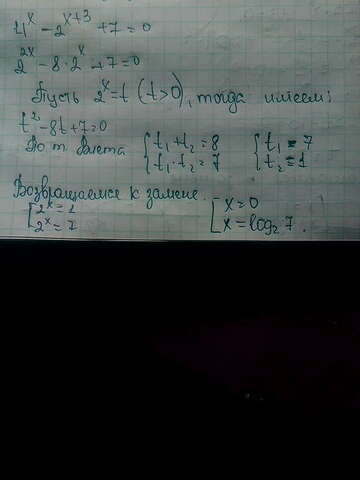 4^x − 2^{x+3} + 7 = 0
2^{2x} − 8·2^x + 7 = 0
Пусть 2^x = t (t>0), тогда имеем:
t² − 8t + 7 = 0
По т. Виета { t₁ + t₂ = 8 { t₁ = 7
t₁ · t₂ = 7 t₂ = 1
Возвращаемся к замене.
[ 2^x = 1 [ x = 0
2^x = 7 x = log₂ 7.